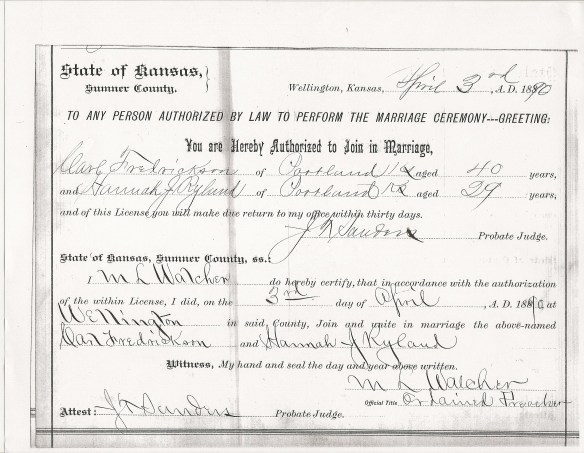 State of Kansas,
Sumner County.
Wellington, Kansas, April 3rd, A. D. 1890
TO ANY PERSON AUTHORIZED BY LAW TO PERFORM THE MARRIAGE CEREMONY---GREETING:
You are Hereby Authorized to Join in Marriage,
Carl Fredrickson of Portland Ks aged 40 years,
and Hannah J Ryland of Portland Ks aged 29 years,
and of this License you will make due return to my office within thirty days.
J T Sanders Probate Judge.
State of Kansas, Sumner County, ss.:
I, M L Walcher do hereby certify, that in accordance with the authorization
of the within License, I did, on the 3rd day of April, A. D. 1890 at
Wellington in said County, Join and unite in marriage the above-named
Carl Fredrickson and Hannah J Ryland
Witness, My hand and seal the day and year above written.
M L Walcher
Official Title Ordained Preacher
Attest: J T Sanders Probate Judge.